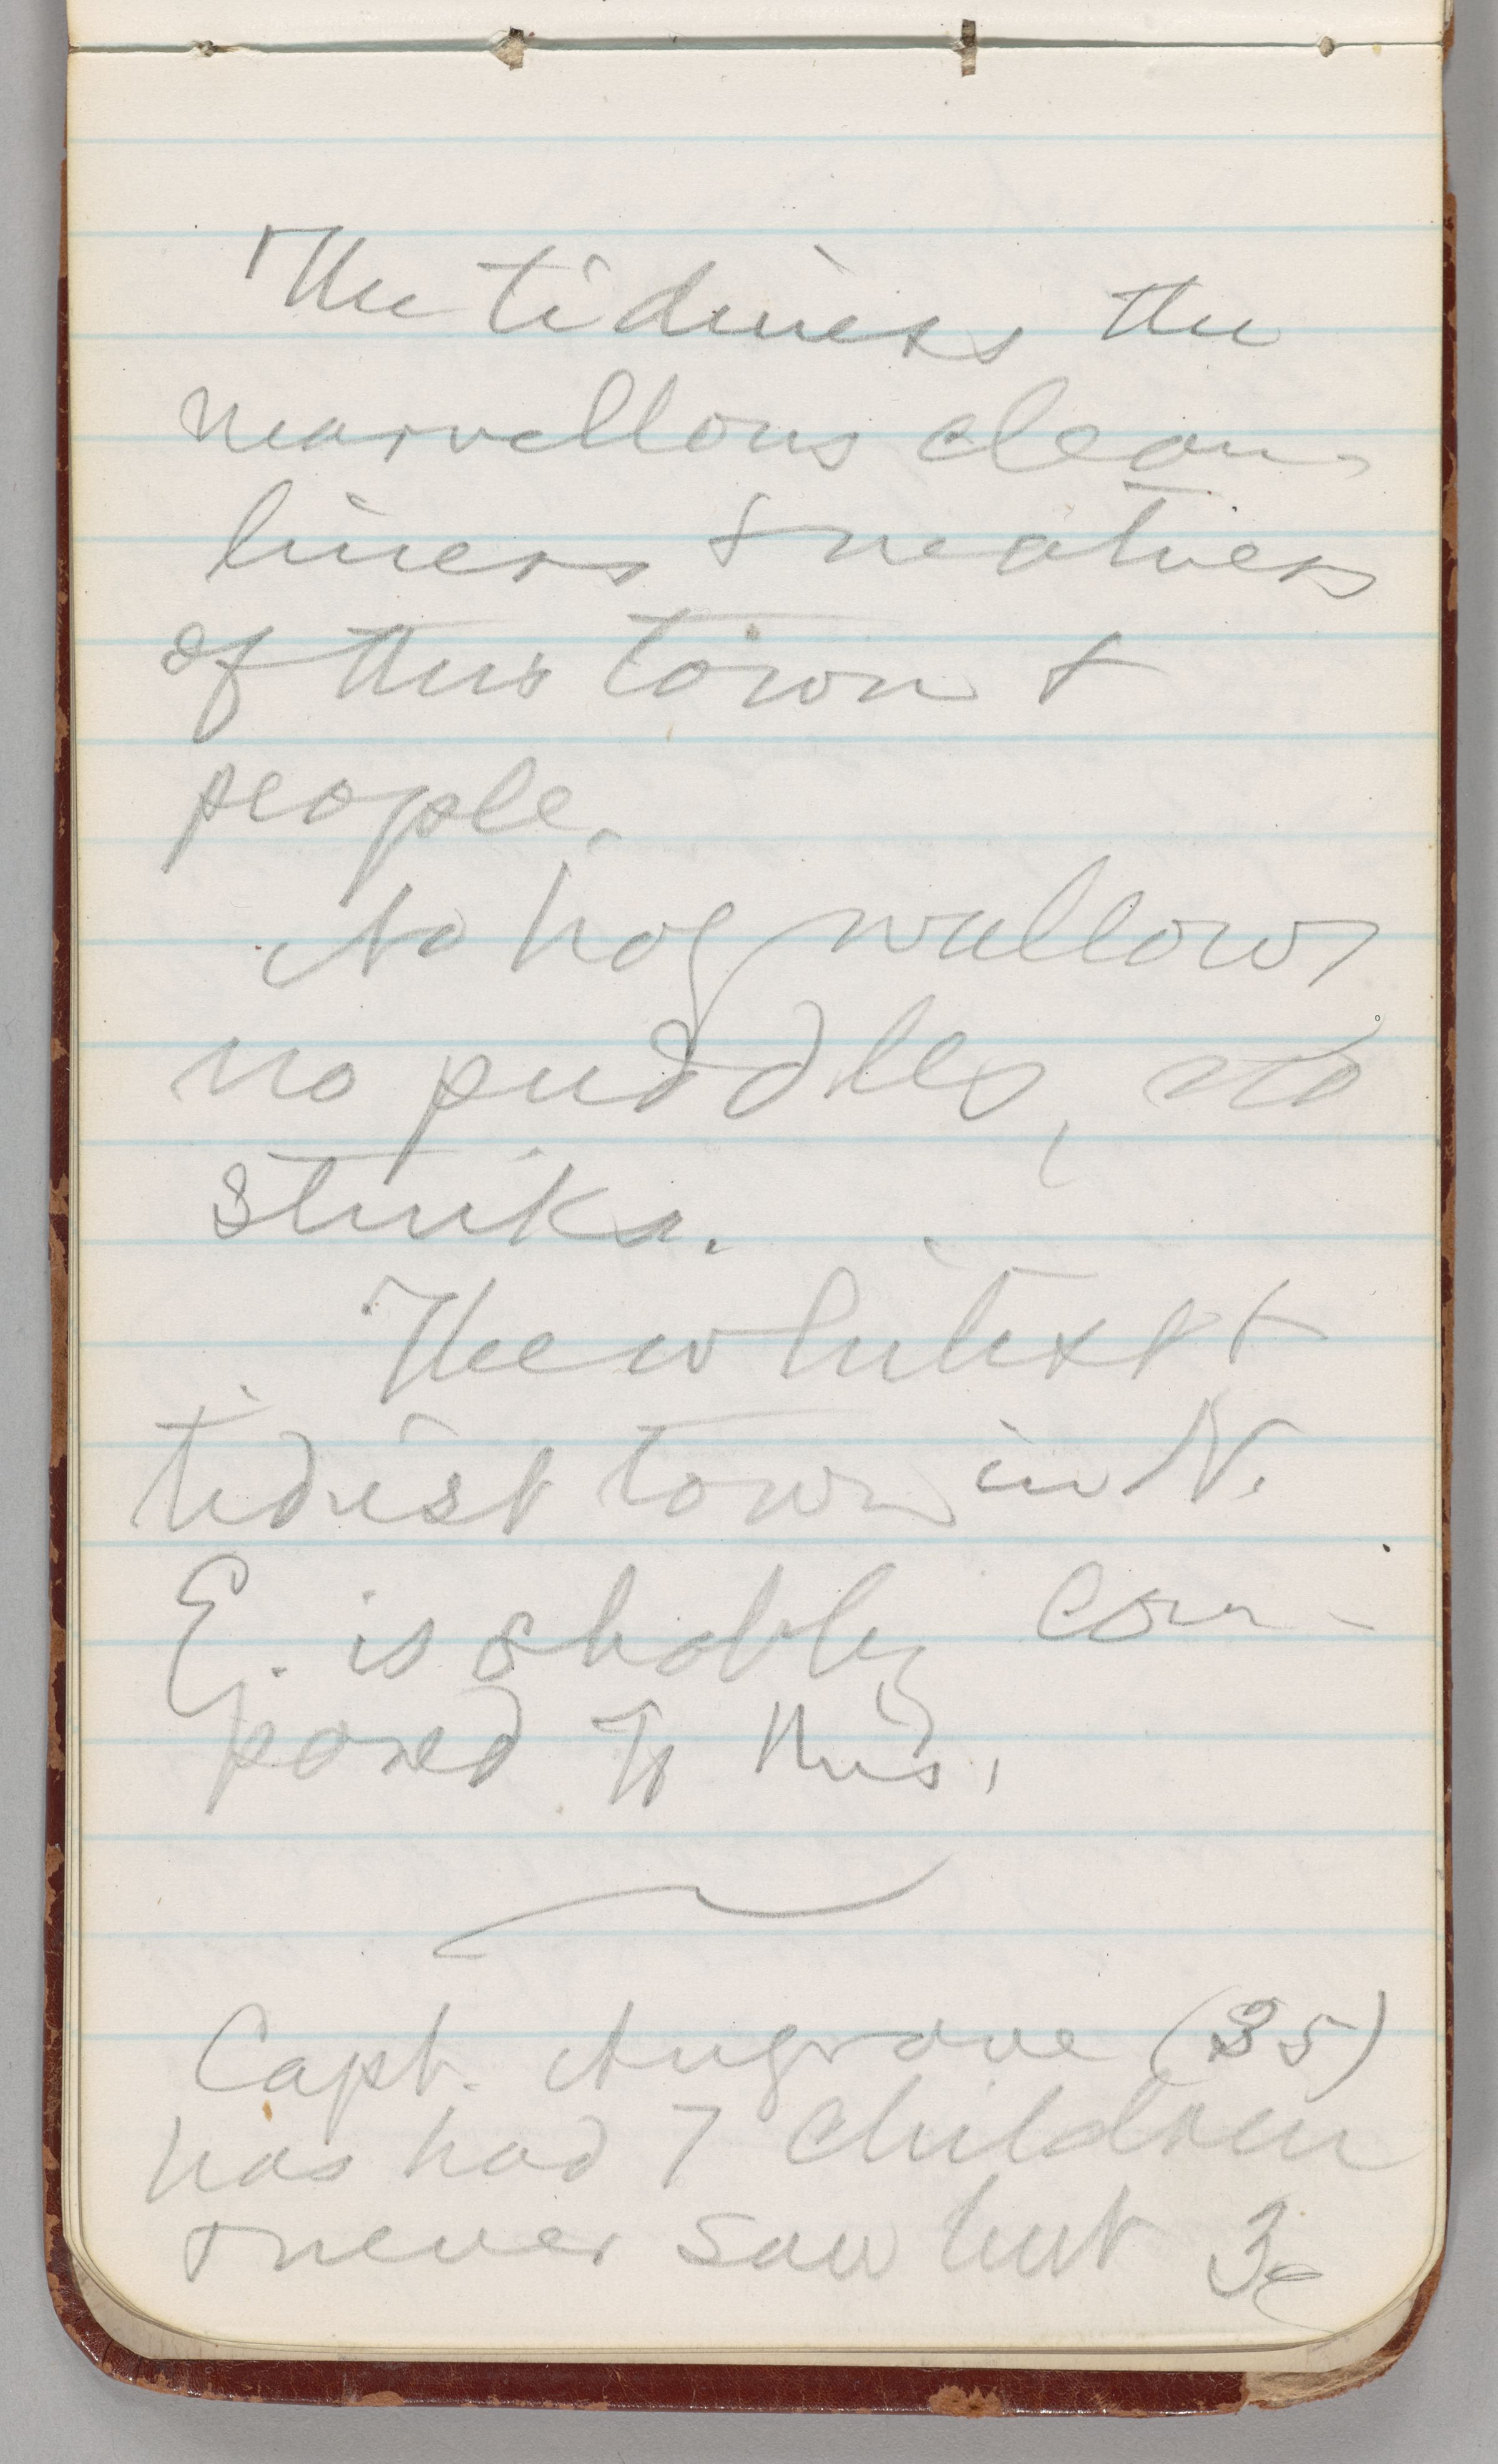 The tidiness the
marvellous clean-
liness & neatness
of this town &
people.
No hog wallows
no puddles, no
stinks.
The whitest &
tidiest town in N.
E. is shabby com-
pared to this.
Capt. Angrove (35)
has had 7 children
& never saw but 3